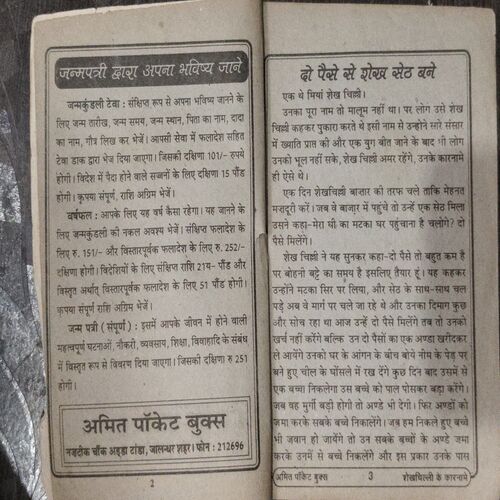 जन्मपत्री द्वारा अपना भविष्य जाने
जन्मकुंडली टेवा : संक्षिप्त रूप से अपना भविष्य जानने के
लिए जन्म तारीख, जन्म समय, जन्म स्थान, पिता का नाम, दादा
का नाम, गौत्र लिख कर भेजें। आपकी सेवा में फलादेश सहित
टेवा डाक द्वारा भेज दिया जाएगा। जिसकी दक्षिणा 101/- रुपये
होगी। विदेश में पैदा होने वाले सज्जनों के लिए दक्षिणा 15 पौंड
होगी। कृपया संपूर्ण, राशि अग्रिम भेजें।
वर्षफल : आपके लिए यह वर्ष कैसा रहेगा। यह जानने के
लिए जन्मकुण्डली की नकल अवश्य भेजें। संक्षिप्त फलादेश के
लिए रु. 151/- और विस्तारपूर्वक फलादेश के लिए रु. 252/-
दक्षिणा होगी। विदेशियों के लिए संक्षिप्त राशि 21य- पौंड और
विस्तृत अर्थात् विस्तारपूर्वक फलादेश के लिए 51 पौंड होगी।
कृपया संपूर्ण राशि अग्रिम भेजें।
जन्म पत्री (संपूर्ण) : इसमें आपके जीवन में होने वाली
महत्वपूर्ण घटनाओं, नौकरी, व्यवसाय, शिक्षा, विवाहादि के संबंध
में विस्तृत रूप से विवरण दिया जाएगा। जिसकी दक्षिणा रु 251
होगी।
अमित पॉकेट बुक्स
नजदीक चौंक अड्डा टांडा, जालन्धर शहर। फोन : 212696
2
दो पैसे से शेख सेठ बने
एक थे मियां शेख चिल्ली।
उनका पूरा नाम तो मालूम नहीं था। पर लोग उसे शेख
चिल्ली कहकर पुकारा करते थे इसी नाम से उन्होंने सारे संसार
में ख्याति प्राप्त की और एक युग बीत जाने के बाद भी लोग
उनको भूल नहीं सके, शेख चिल्ली अमर रहेंगे, उनके कारनामे
ही ऐसे थे।
एक दिन शेखचिल्ली बाजार की तरफ चले ताकि मेहनत
मजदूरी करें। जब वे बाजार में पहुंचे तो उन्हें एक सेठ मिला
उसने कहा-मेरा घी का मटका घर पहुंचाना है चलोगे? दो
पैसे मिलेंगे।
शेख चिल्ली ने यह सुनकर कहा-दो पैसे तो बहुत कम है
पर बोहनी बट्टे का समय है इसलिए तैयार हूं। यह कहकर
उन्होंने मटका सिर पर लिया, और सेठ के साथ-साथ चल
पड़े अब वे मार्ग पर चले जा रहे थे और उनका दिमाग कुछ
और सोच रहा था आज उन्हें दो पैसे मिलेंगे तब तो उनको
खर्च नहीं करेंगे बल्कि उन दो पैसों का एक अण्डा खरीदकर
ले आयेंगे उनको घर के आंगन के बीच बोये नीम के पेड़ पर
बने हुए चील के घोंसले में रख देंगे कुछ दिन बाद उसमें से
एक बच्चा निकलेगा उस बच्चे को पाल पोसकर बड़ा करेंगे।
जब वह मुर्गी बड़ी होगी तो अण्डे भी देगी। फिर अण्डों को
जमा करके सबके बच्चे निकालेंगे। जब हम निकले हुए बच्चे
भी जवान हो जायेंगे तो उन सबके बच्चों के अण्डे जमा
करके उनमें से बच्चे निकलेंगे और इस प्रकार उनके पास
अमित पॉकेट बुक्स
3
शेखचिल्ली के कारनामे